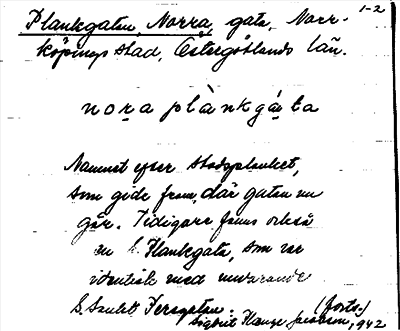 1-2
Plankgatan, Norra, gata, Norr-
köpings stad, Östergötlands län.
nọra plànkgạ́ta
Namnet efter stadsplanket,
som gick fram, där gatan nu
går. Tidigare fanns också
en S. Plankgata, som var
identisk med nuvarande
S. Sankt Persgatan.
Sigurd
1942